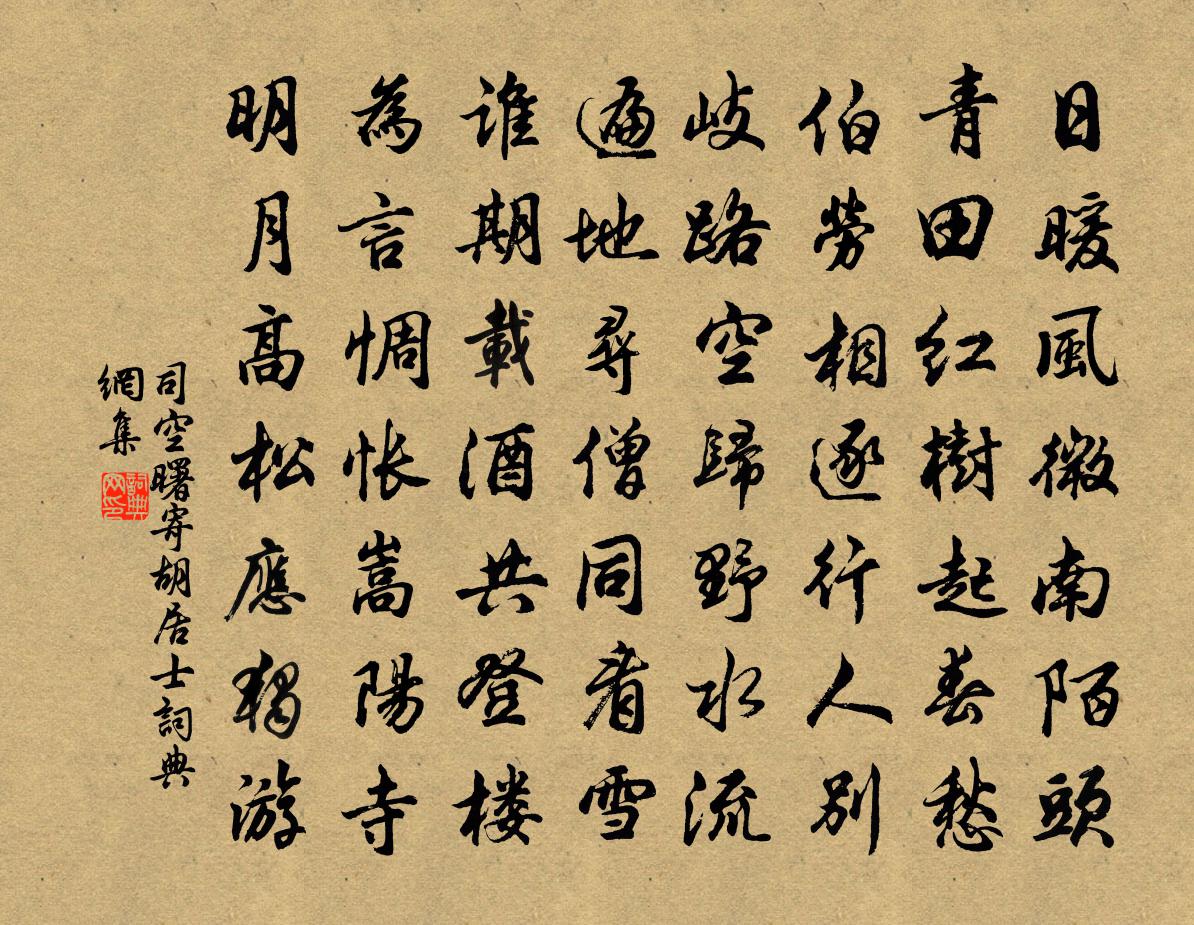 日暖風微南陌頭
青田紅樹起春愁
伯勞相逐行人別
岐路空歸野水流
遍地尋僧同看雪
誰期載酒共登楼
為言惆怅嵩陽寺
明月高松應獨游
司空曙寄胡居士詞典
網集
詞典
网印